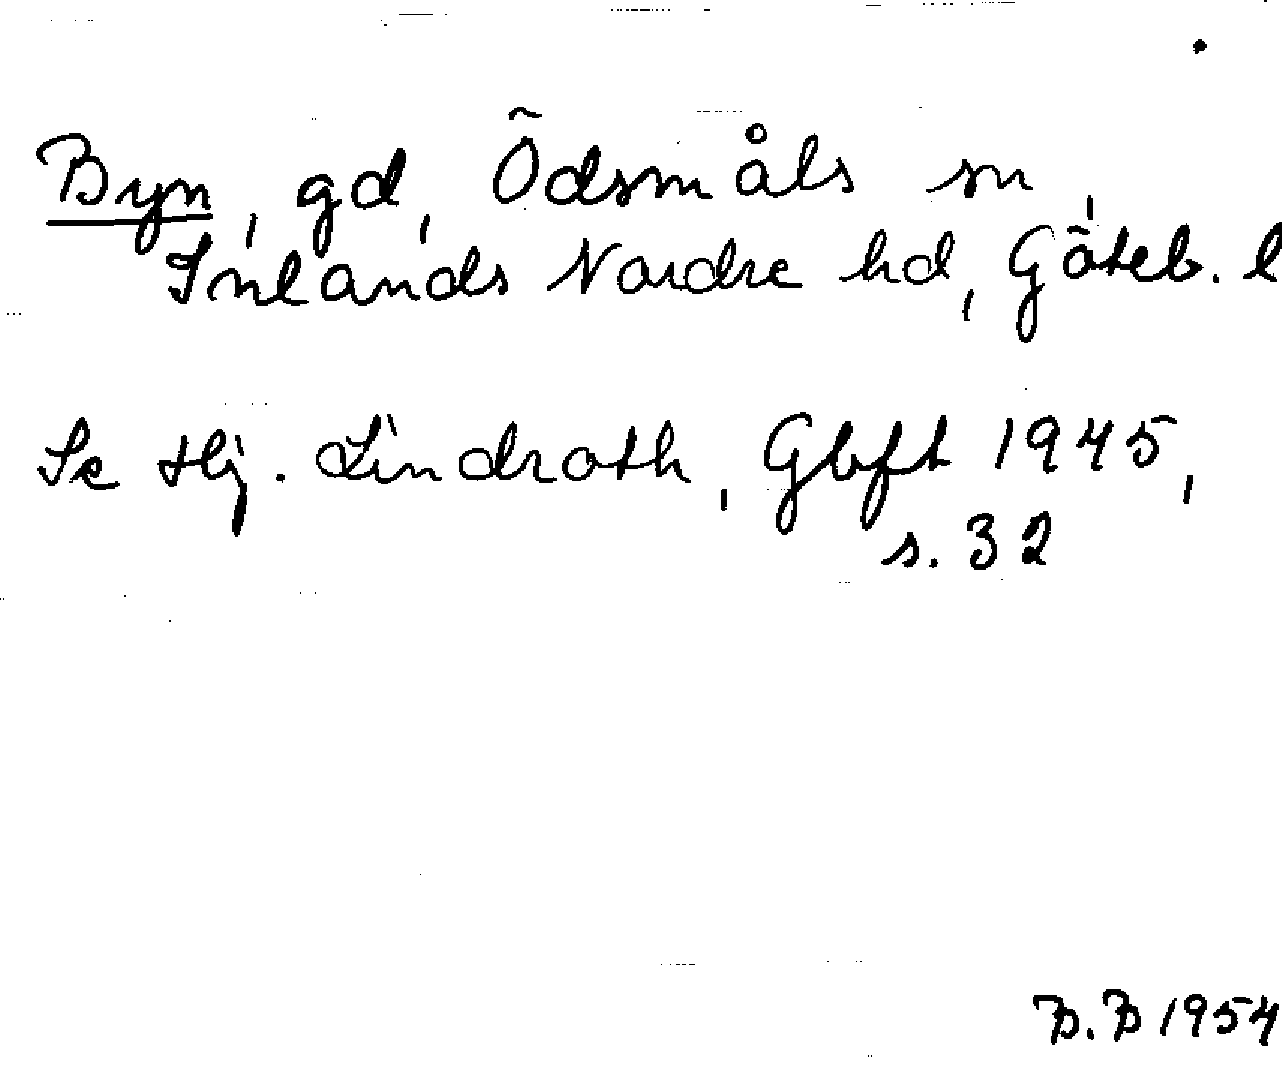 Byn, gd, Ödsmåls sn,
Inlands Nordre hd, Göteb. l
Se Hj. Lindroth, Gbft 1945,
s. 32
B.B 1954